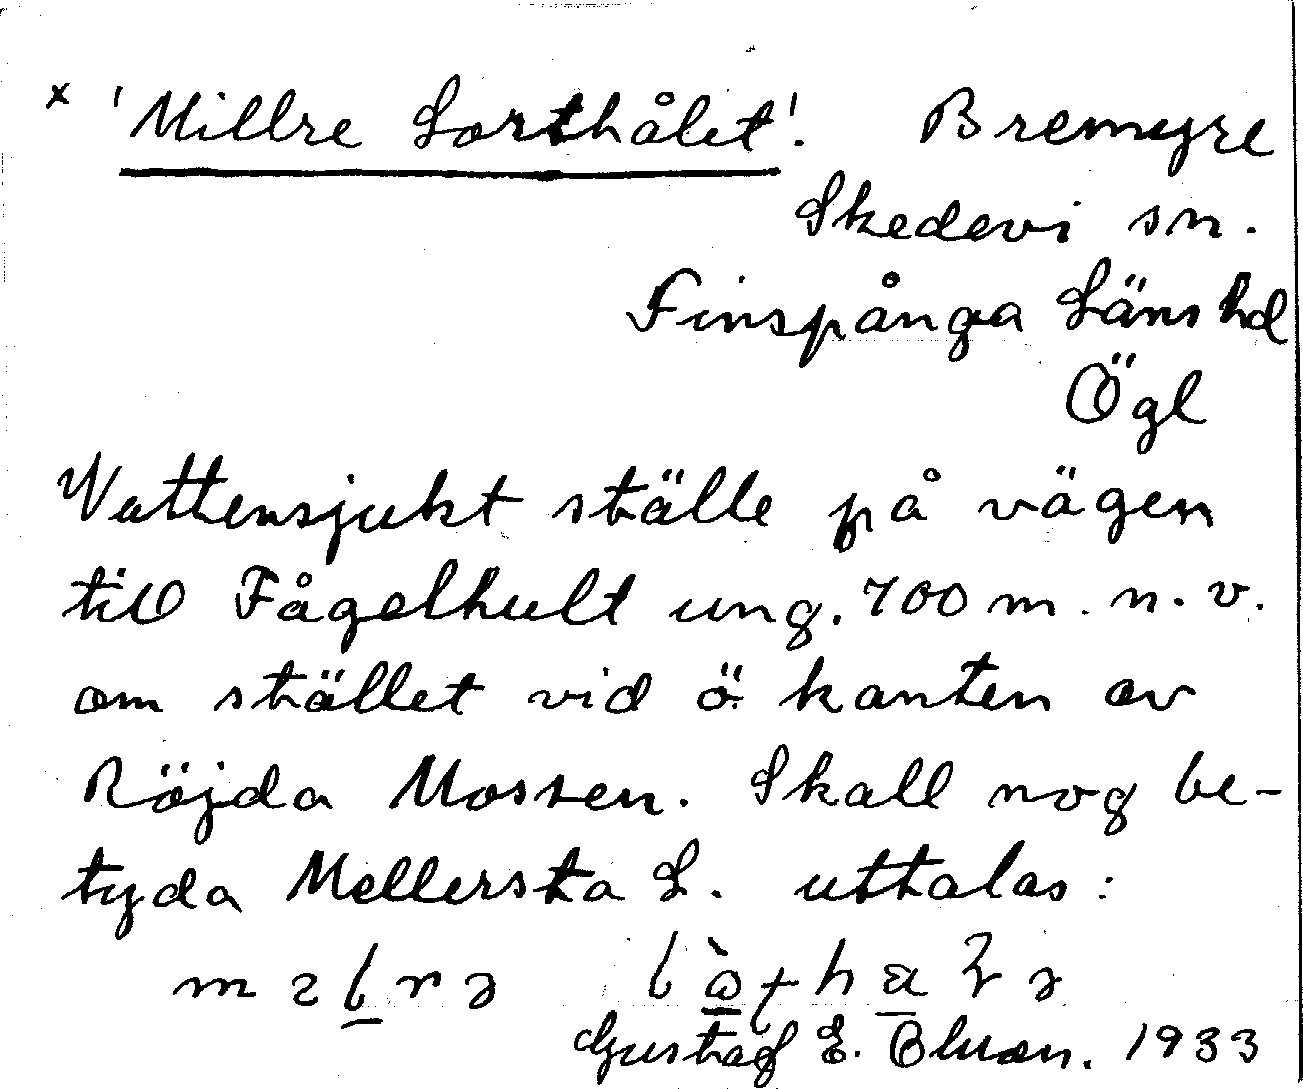 x 'Millre Lorthålet'. Bremyre
Skedevi sn.
Finspånga Läns hd
Ögl
Vattensjukt ställe på vägen
till Fågelhult ung. 700 m. n. v.
om stället vid ö. kanten av
Röjda Mossen. Skall nog be-
tyda Mellersta L. uttalas:
Gustaf E. 1933